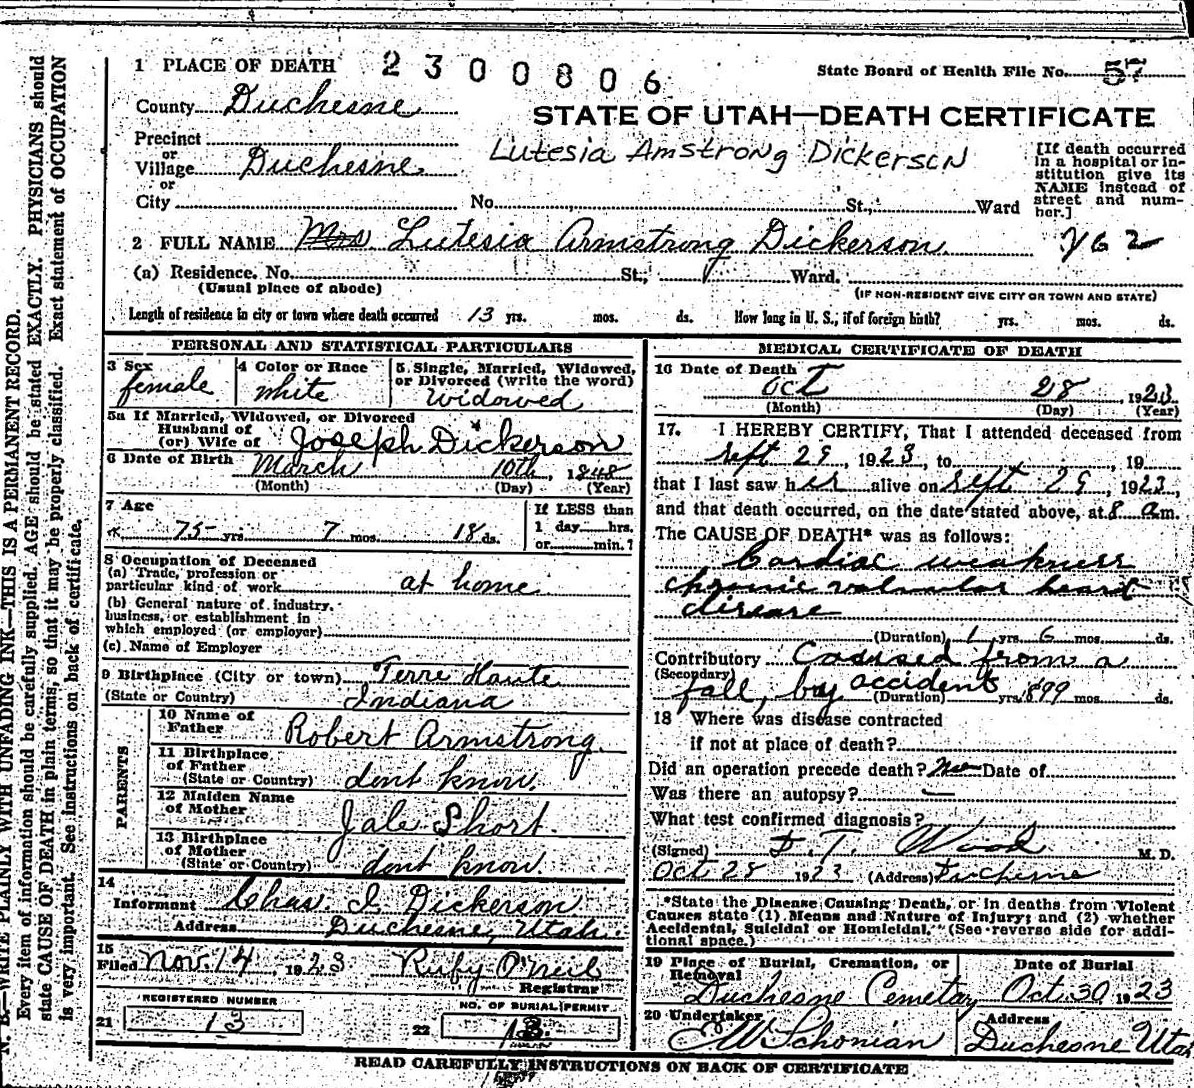 1 PLACE OF DEATH 2300806 State Board of Health File No. 57
County Duchesne
STATE OF UTAH—DEATH CERTIFICATE
Precinct
or
Village Duchesne
or
City No. St., Ward
Lutesia Amstrong Dickerson
[If death occurred
in a hospital or in-
stitution give its
NAME instead of
street and num-
ber.]
2 FULL NAME Mrs Lutesia Armstrong Dickerson
(a) Residence. No. St., Ward.
(Usual place of abode)
(IF NON-RESIDENT GIVE CITY OR TOWN AND STATE)
Length of residence in city or town where death occurred 13 yrs. mos. ds. How long in U. S., if of foreign birth? yrs. mos. ds.
PERSONAL AND STATISTICAL PARTICULARS
3 Sex
female
4 Color or Race
white
5 Single, Married, Widowed,
or Divorced (write the word)
Widowed
5a If Married, Widowed, or Divorced
Husband of
(or) Wife of Joseph Dickerson
6 Date of Birth March 10th, 1848
(Month) (Day) (Year)
7 Age
75 yrs. 7 mos. 18 ds.
If LESS than
1 day hrs.
or min.?
8 Occupation of Deceased
(a) Trade, profession or
particular kind of work at home
(b) General nature of industry,
business, or establishment in
which employed (or employer)
(c) Name of Employer
9 Birthplace (City or town) Terre Haute
(State or Country) Indiana
PARENTS
10 Name of
Father Robert Armstrong
11 Birthplace
of Father
(State or Country) dont know.
12 Maiden Name
of Mother Jale Short
13 Birthplace
of Mother
(State or Country) dont know.
14
Informant Chas. I. Dickerson
Address Duchesne, Utah.
15
Filed Nov. 14, 1923 Ruby O'Neil
Registrar
REGISTERED NUMBER
21 13
NO. OF BURIAL PERMIT
22 13
MEDICAL CERTIFICATE OF DEATH
16 Date of Death
Oct 28, 1923
(Month) (Day) (Year)
17. I HEREBY CERTIFY, That I attended deceased from
Sept 29, 1923, to , 19
that I last saw her alive on Sept 29, 1923,
and that death occurred, on the date stated above, at 8 am.
The CAUSE OF DEATH* was as follows:
Cardiac weakness
chronic valvular heart
disease
(Duration) 1 yrs. 6 mos. ds.
Contributory Caused from a
(Secondary)
fall, by accident (Duration) yrs. 1899 mos. ds.
18 Where was disease contracted
if not at place of death?
Did an operation precede death? no Date of
Was there an autopsy?
What test confirmed diagnosis?
(Signed) Wood M. D.
Oct 28 1923 (Address) Duchesne
*State the Disease Causing Death, or in deaths from Violent
Causes state (1) Means and Nature of Injury; and (2) whether
Accidental, Suicidal or Homicidal. (See reverse side for addi-
tional space.)
19 Place of Burial, Cremation, or
Removal
Duchesne Cemetary
Date of Burial
Oct. 30 1923
20 Undertaker
Schonian
Address
Duchesne Utah
READ CAREFULLY INSTRUCTIONS ON BACK OF CERTIFICATE
N. B.—WRITE PLAINLY WITH UNFADING INK—THIS IS A PERMANENT RECORD.
Every item of information should be carefully supplied. AGE should be stated EXACTLY. PHYSICIANS should
state CAUSE OF DEATH in plain terms, so that it may be properly classified. Exact statement of OCCUPATION
is very important. See instructions on back of certificate.